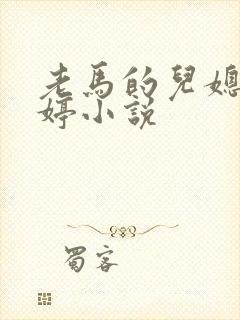 老馬的兒媳
婷小說
蜀客